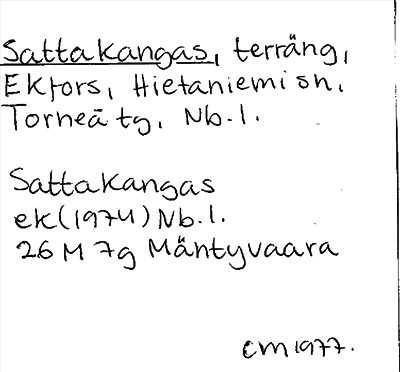 Sattakangas, terräng,
Ekfors, Hietaniemi sn.
Torneå tg. Nb.l.
Sattakangas
ek (1974) Nb.l.
26 M 7g Mäntyvaara
CM 1977.